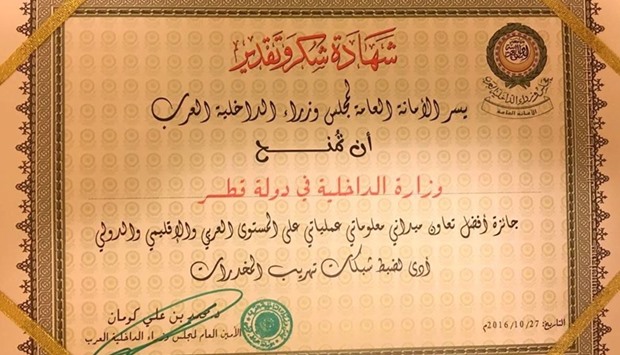 شهادة شكر وتقدير
الأمانة العامة
يسر الأمانة العامة لمجلس وزراء الداخلية العرب
أن تمنح
وزارة الداخلية في دولة قطر
جائزة أفضل تعاون ميداني معلوماتي عملياتي على المستوى العربي والإقليمي والدولي
أدى لضبط شبكات تهريب المخدرات
التاريخ: 2016/10/27م
بن علي كومان
الأمين العام لمجلس وزراء الداخلية العرب